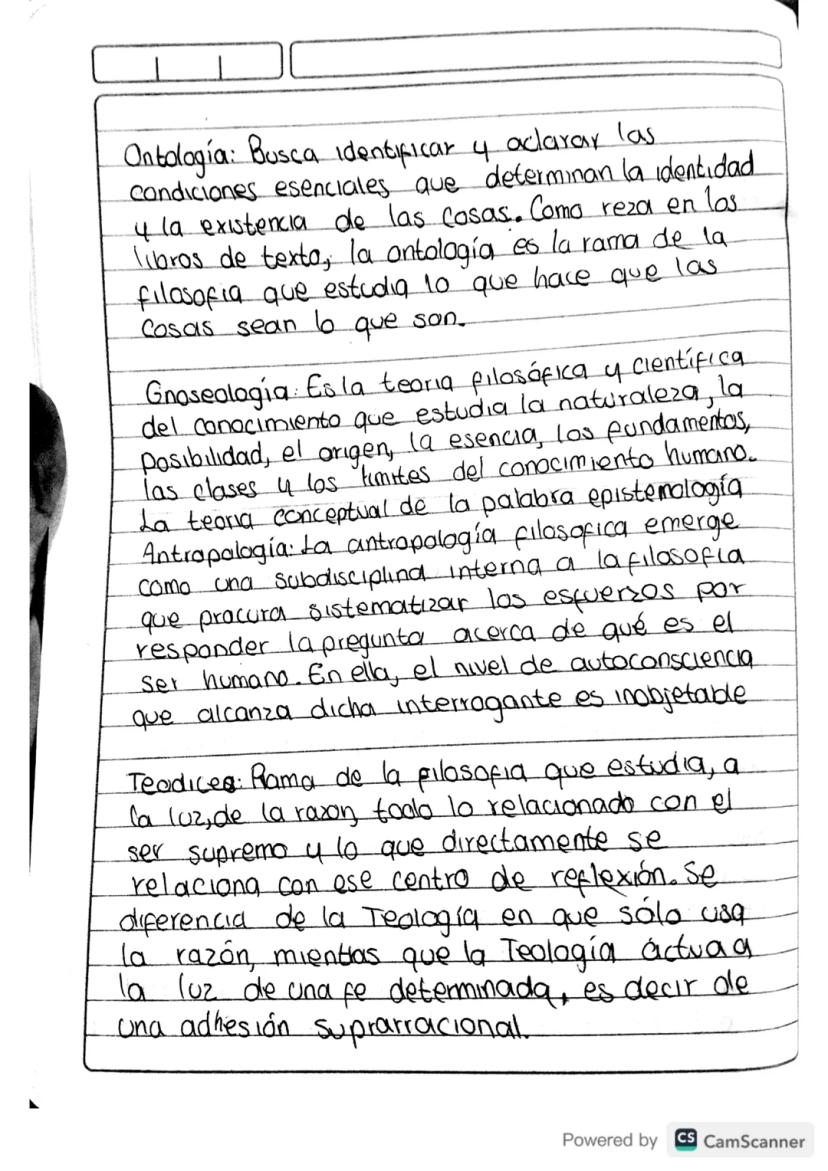 Ontología: Busca identificar y aclarar las
condiciones esenciales que determinan la identidad
y la existencia de las cosas. Como reza en los
libros de texto, la ontología es la rama de la
filosofia que estudia lo que hace que las
cosas sean lo que son.
Gnoseología: Es la teoria filosófica y científica
del conocimiento que estudia la naturaleza, la
posibilidad, el origen, la esencia, los fundamentos,
las clases y los limites del conocimiento humano.
La teoria conceptual de la palabra epistemología
Antropología: La antropología filosofica emerge
como una subdisciplina interna a la filosofia
que procura sistematizar los esfuerzos por
responder la pregunta acerca de qué es el
ser humano. En ella, el nivel de autoconsciencia
que alcanza dicha interrogante es inobjetable
Teodicea: Rama de la filosofia que estudia, a
la luz, de la razon, todo lo relacionado con el
ser supremo y lo que directamente se
relaciona con ese centro de reflexión. Se
diferencia de la Teología en que sólo usa
la razón, mientras que la Teología áctua a
la luz de una fe determinada, es decir de
una adhesión suprarracional.
Powered by CS CamScanner